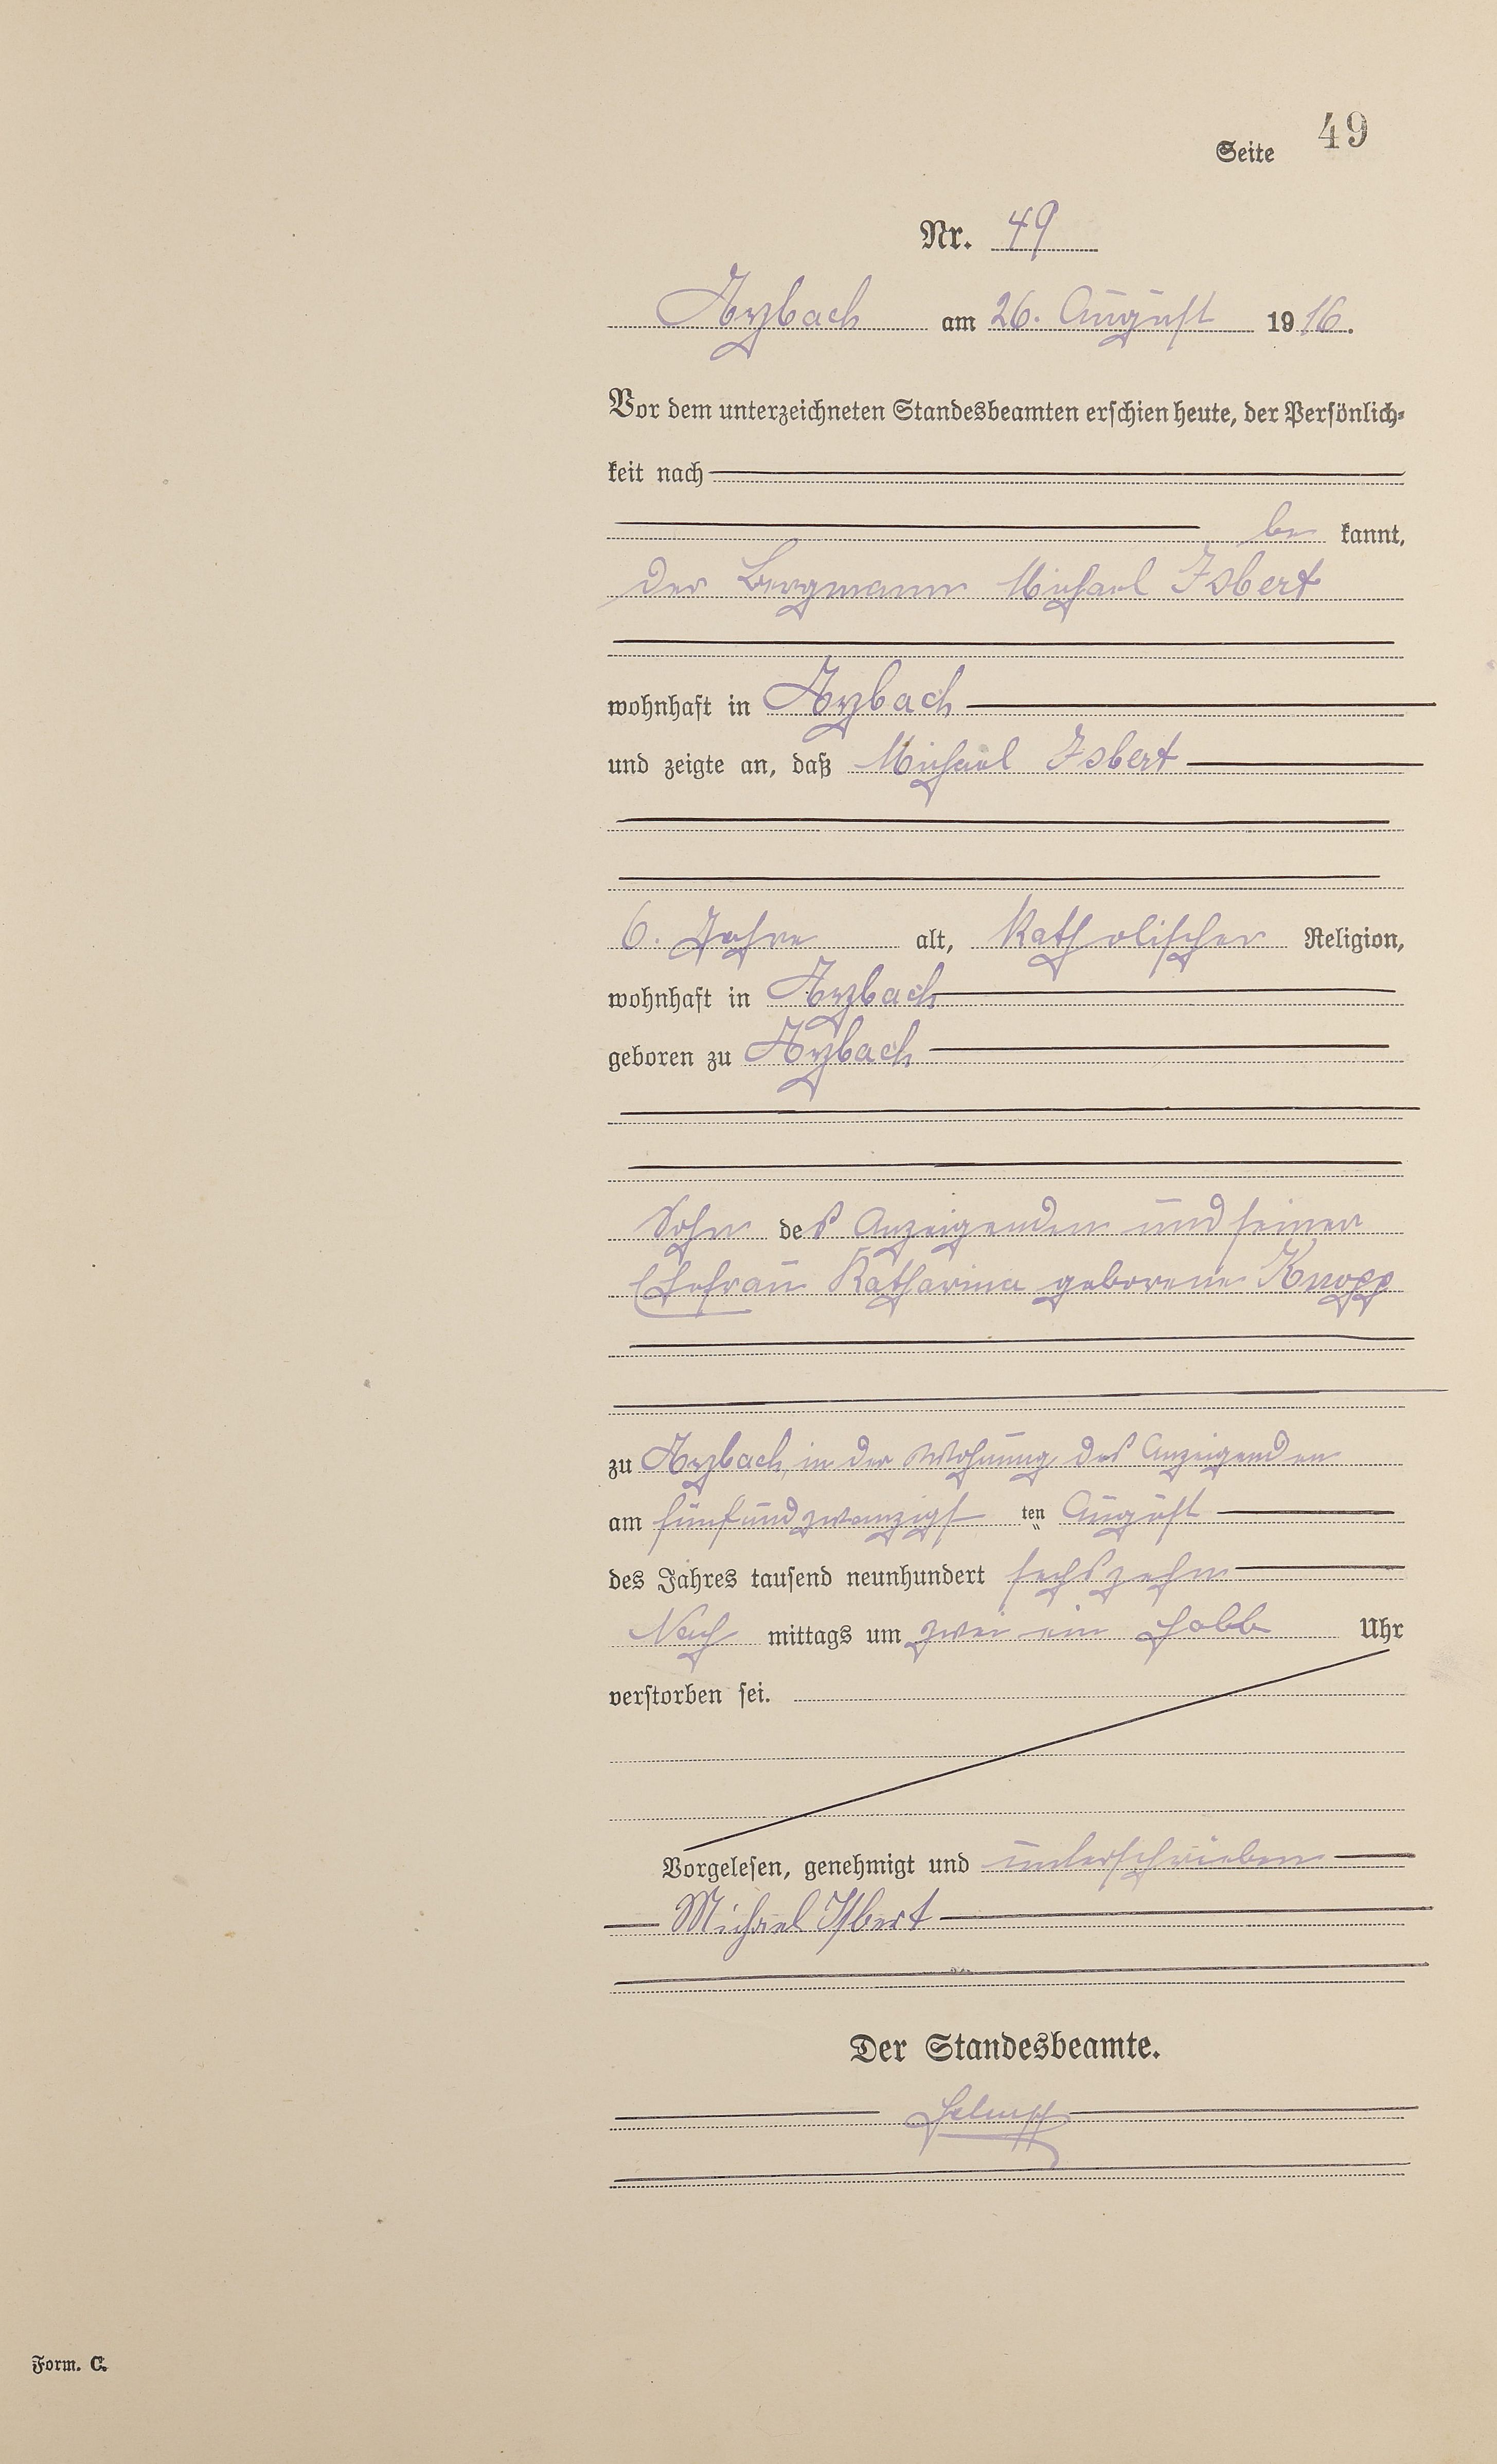 Seite 49
Nr. 49
Arzbach am 26. August 1916.
Vor dem unterzeichneten Standesbeamten erschien heute, der Persönlich-
keit nach
be kannt,
der Bergmann Michael Isbert
wohnhaft in Arzbach
und zeigte an, daß Michael Isbert
6. Jahre alt, katholischer Religion,
wohnhaft in Arzbach
geboren zu Arzbach
Sohn des Anzeigenden und seiner
Ehefrau Katharina geborene Knopp
zu Arzbach, in der Wohnung des Anzeigenden
am fünfundzwanzigst ten August
des Jahres tausend neunhundert sechszehn
Nach mittags um zwei ein halb Uhr
verstorben sei.
Vorgelesen, genehmigt und unterschrieben
Michael Isbert
Der Standesbeamte.
Form. C.